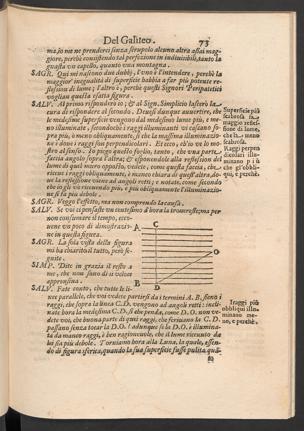 Del Galileo. 73
ma, io ne ne prenderei senza scrupolo alcuno altra assai mag-
giore, perchè consistendo tal perfezione in indivisibile, tanto la
guasta un capello, quanto una montagna.
SAGR. Qui mi nascono due dubbj, l'uno è l'intendere, perchè la
maggior inegualità di superficie habbia a far più potente re-
flession di lume; l'altro è, perchè questi Signori Peripatetici
vogliano questa esatta figura.
SALV. Al primo risponderò io; & al Sign. Simplicio lascerò la
cura di rispondere al secondo. Devesi dunque avvertire, che
le medesime superficie vengono dal medesimo lume più, e me-
no illuminate, secondochè i raggi illuminanti vi cascano so-
pra più, ò meno obliquamente, si che la massima illuminazio-
ne è dove i raggi son perpendicolari. Et ecco, ch'io ve lo mo-
stro al senso. Io piego questo foglio, tanto, che una parte
faccia angolo sopra l'altra; & esponendole alla reflession del
lume di quel muro opposto, vedete, come questa faccia, che
riceve i raggi obliquamente, è manco chiara di quest'altra, do-
ue la reflessione viene ad angoli retti; e notate, come secondo
che io gli vo ricevendo più, e più obliquamente l'illuminazio-
ne si fa più debole.
SAGR. Veggo l'effetto, ma non comprendo la causa.
SALV. Se voi ci pensaste un centesimo d'hora la trovereste; ma per
non consumare il tempo, ecco-
ui un poco di dimostrazio-
ne in questa figura.
SAGR. La sola vista della figura
mi ha chiarito il tutto, però se-
guite.
SIMP. Dite in grazia il resto a
me, che non sono di sì veloce
apprensiva.
SALV. Fate conto, che tutte le li-
nee parallele, che voi vedete partirsi da i termini A. B. sieno i
raggi, che sopra la linea C. D. vengono ad angoli retti: incli-
nate hora la medesima C. D. si che penda, come D. O. non ve-
dete voi, che buona parte di quei raggi, che ferivano la C. D.
passano senza toccar la D. O.? adunque se la D. O. è illumina-
ta da manco raggi, è ben ragionevole, che il lume ricevuto da
lei sia più debole. Torniamo hora alla Luna, la quale, essen-
do di figura sferica, quando la sua superficie fusse pulita, quā-
Superficie più
scabrosa fa
maggio reflessio-
ne di lume,
che la meno
scabrosa.
Raggi perpen
dicolari illu-
minano più
che gli obli-
qui, e perchè.
A
C
O
B
D
I raggi più
obbliqui illu-
minano me-
no, e perchè.